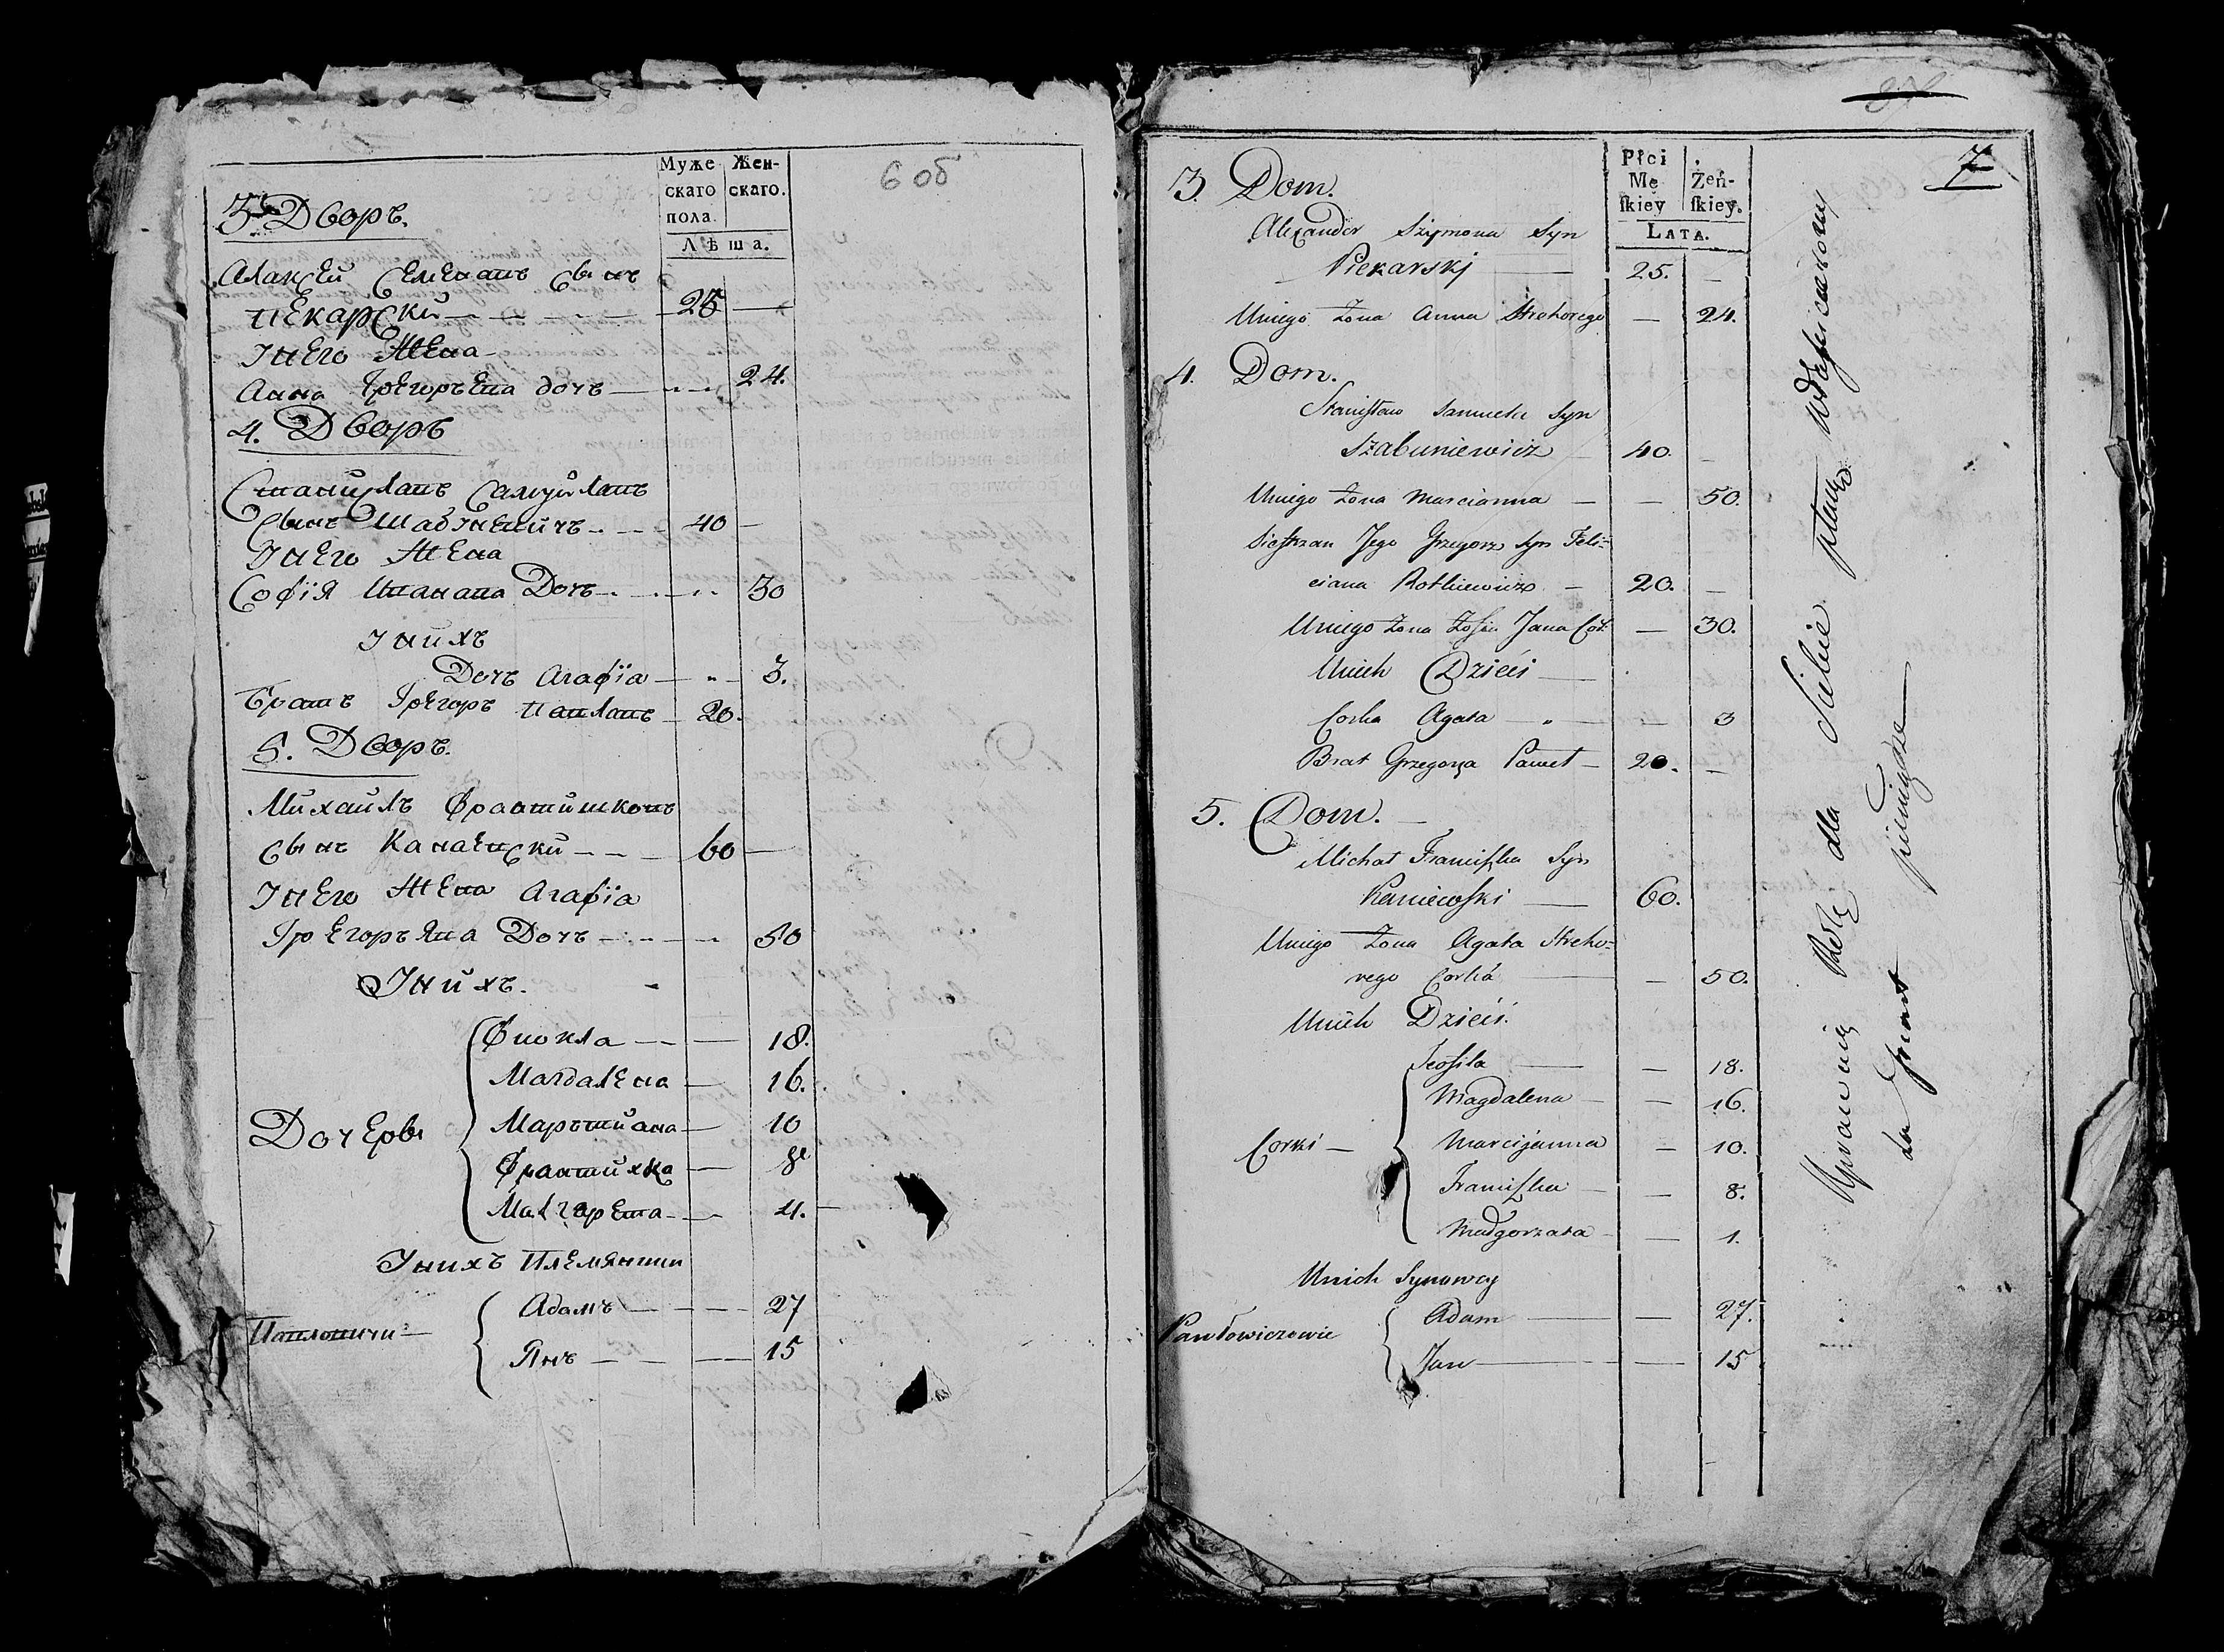 6 об
Муже
скаго
пола.
Жен-
скаго.
Лѣша.
3. Дворъ.
Алаксей Семенавъ Сынъ
Пекарски 25
Інего жена
Анна Грегоръева дочъ 24.
4. Дворъ
Станиславъ Самуйлавъ
Сынъ Шабуневичъ 40
Інего жена
Софія Иванава Дочъ 30
Інихъ
Дочъ Агафіа 3.
Братъ Грегоръ Павлавъ 20.
5. Дворъ.
Михаилъ Францишковъ
Сынъ Канаевски 60
Інего жена Агафіа
Грегоръява Дочъ 50
Інихъ.
Дочеры
Фиокла 18.
Магдалена 16.
Марцийана 10
Францишка 8
Малгарета 4.
Інихъ Племянники
Павловичи
Адамъ 27
Янъ 15
7
Płci
Mę
ſkiey
Żeń-
ſkiey.
LATA.
3. Dom.
Alexander Szymona Syn
Piekarskj 25.
Uniego Żona Anna Hrehorego 24.
4. Dom.
Stanisław Samuela Syn
Szabuniewicz 40.
Uniego Żona Marcianna 50.
Siestrzan Jego Grzegorz Syn Feli=
ciana 20.
Uniego Żona Zofia Jana Cór. 30.
Unich Dzieci
Corka Agata 3
Brat Grzegorza Paweł 20.
5. Dom.
Michał Franciszka Syn
Kaniewski 60.
Uniego Żona Agata Hreho=
rego Corka 50.
Unich Dzieci.
Corki
Teofila 18.
Magdalena 16.
Marcijanna 10.
Franciszka 8.
Małgorzata 1.
Unich Synowcy
Pawłowiczowie
Adam 27.
Jan 15
Uprawnią Rolę dla Siebie płacąc
za Grunt pieniądze